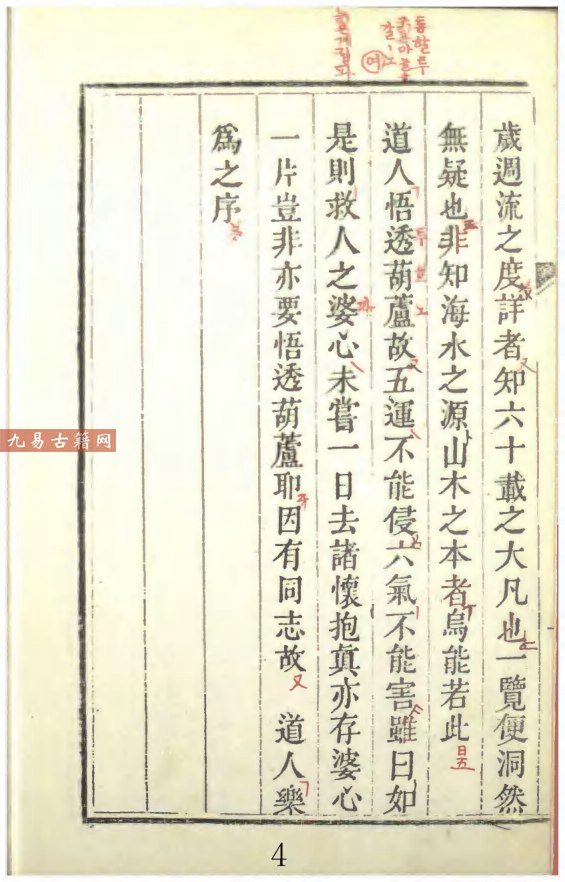 歲週流之度詳者知六十載之大凡也一覽便洞然
無疑也非知海水之源山木之本者烏能若此
道人悟透葫蘆故五運不能侵六氣不能害雖曰如
是則救人之婆心未嘗一日去諸懷抱眞亦存婆心
一片豈非亦要悟透葫蘆耶因有同志故 道人樂
爲之序
九易古籍网
4